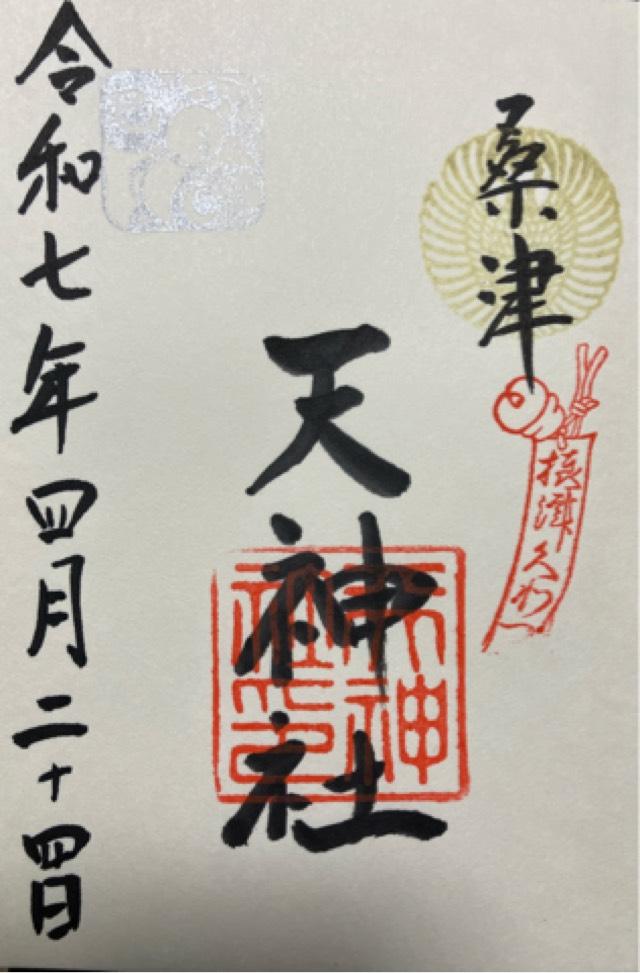 桑津
摂津久わ
天神社
天神社印
令和七年四月二十四日